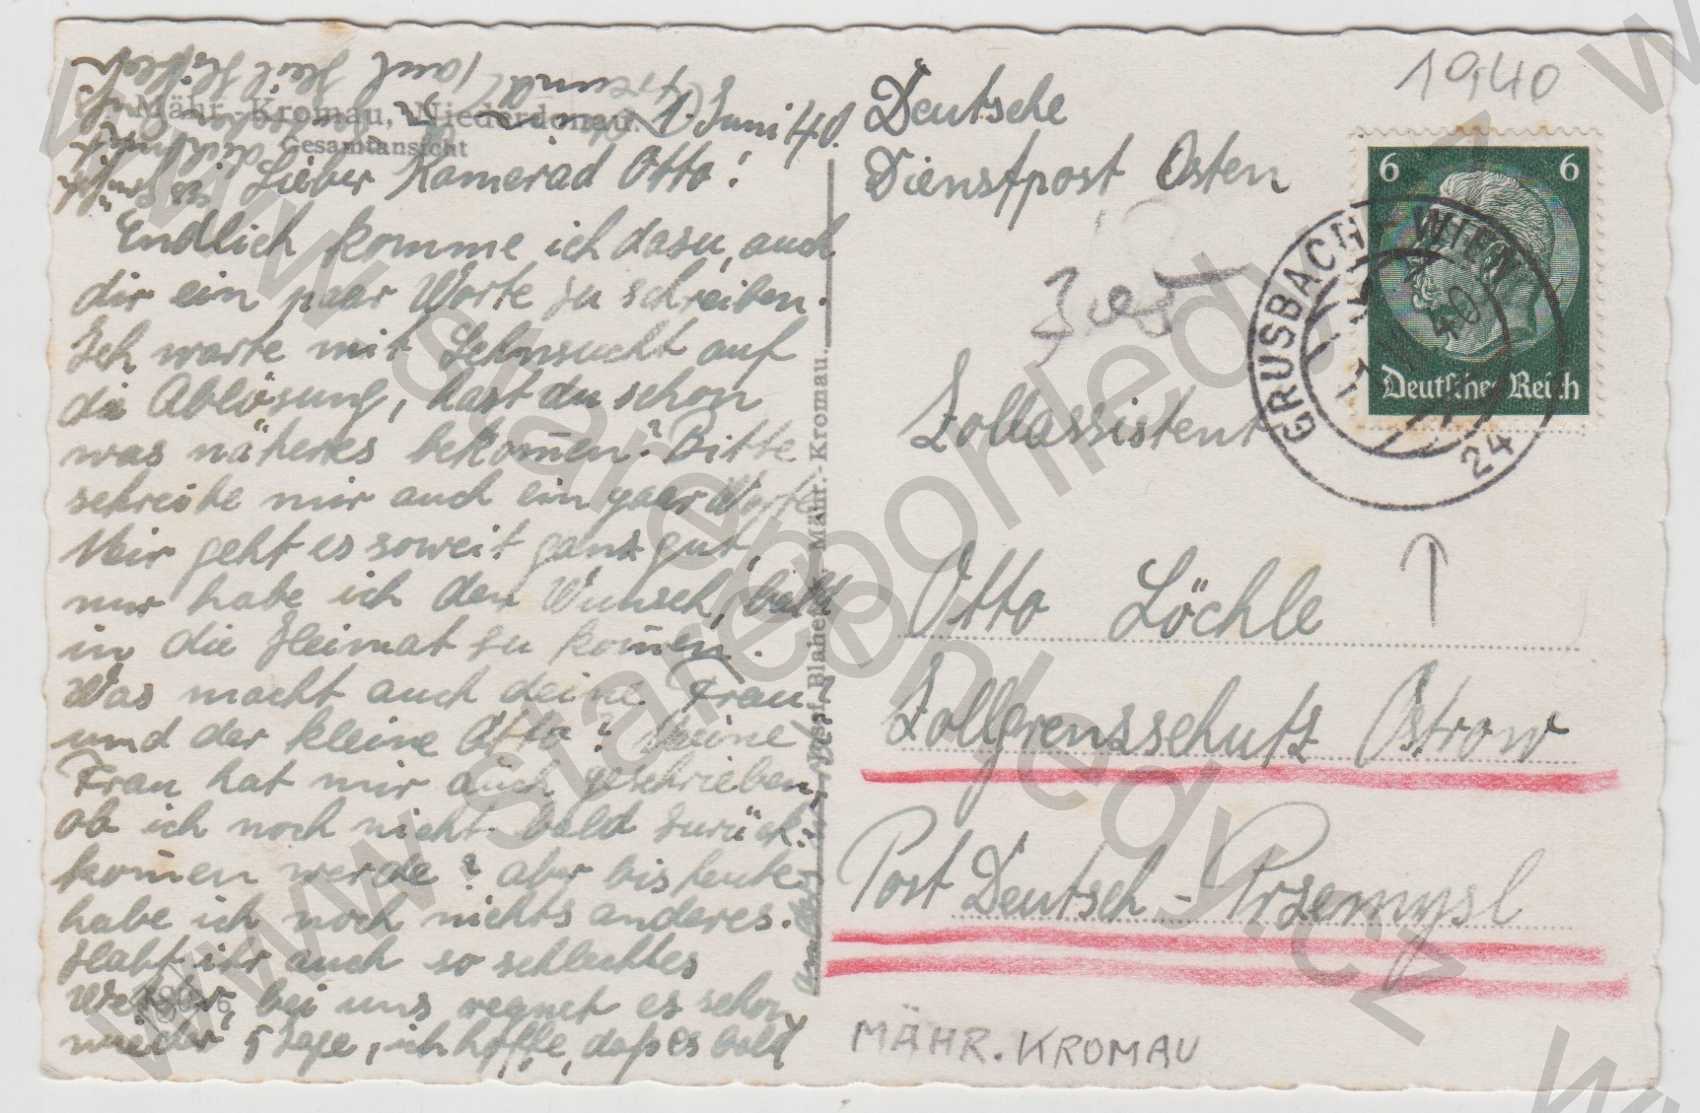 1940
Mähr.-Kromau, Niederdonau.
Gesamtansicht
1. Juni 40.
Lieber Kamerad Otto!
Endlich komme ich dazu, auch
dir ein paar Worte zu schreiben.
Ich warte mit Sehnsucht auf
die Ablösung, hast du schon
was näheres bekom̄en? Bitte
schreibe mir auch ein paar Worte
Mir geht es soweit ganz gut,
nur habe ich den Wunsch, bald
in die Heimat zu kom̄en.
Was macht auch deine Frau
und der kleine Otto? Meine
Frau hat mir auch geschrieben,
ob ich noch nicht bald zurück
kom̄en werde? aber bis heute
habe ich noch nichts anderes.
Habt ihr auch so schlechtes
Wetter, bei uns regnet es schon
wieder 5 Tage, ich hoffe, daß es bald
Heil Hitler
Josef Blaha, Mähr.-Kromau.
Deutsche
Dienstpost Osten
6 6
Deutsches Reich
GRUSBACH-WIEN
40
24
Zollassistent
Otto Löchle
Zollgrenzschutz Ostrow
Post Deutsch-Przemysl
MÄHR. KROMAU
www.starepohledy.cz